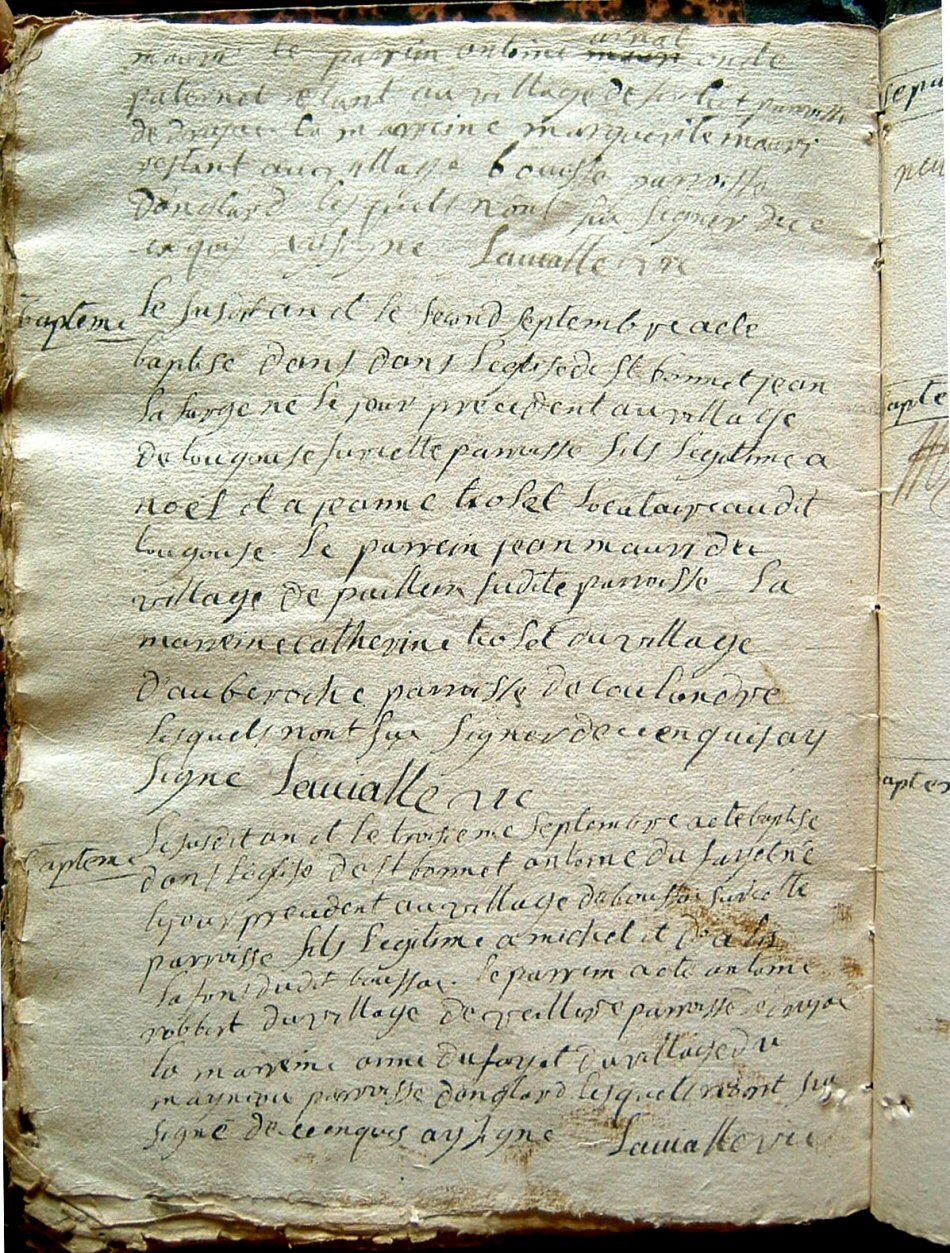 arnal
mauri le parrein antoine mauri oncle
paternel restant au village de parroisse
de drujac la marreine marguerite mauri
restant au village bouisse parroisse
d'anglard lesquels nont su signer de ce
enquis ay signe Lavialle vic
bapteme
le susdit an et le second septembre a ete
baptise dans dans leglise de st bonnet jean
la farge ne le jour précédent au village
de lougouse surditte parroisse fils legitime a
noël et a jeanne trolet locataire audit
lougouse. le parrein jean mauri du
village de paillern sudite parroisse la
marreine catherine trolet du village
d'auberoche parroisse de coulandre
lesquels nont su signer de ce enquis ay
signe Lavialle vic
bapteme
le susdit an et le troisieme septembre a ete baptise
dans leglise de st bonnet antoine du fayet né
le jour precedent au village de boussac surditte
parroisse fils legitime a michel et d'a
la fon dudit boussac. le parrein a ete antoine
robbert du village de parroisse de drujac
la marreine anne du fayet du village du
parroisse danglard lesquels nont su
signé de ce enquis ay signe Lavialle vic